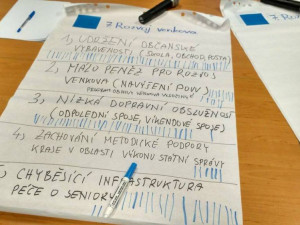 7 Rozvoj venkova
1) UDRŽENÍ OBČANSKÉ
VYBAVENOSTI (ŠKOLA, OBCHOD, POŠTA)
2) MÁLO PENĚZ PRO ROZVOJ
VENKOVA (NAVÝŠENÍ POV)
PROGRAM OBNOVY VENKOVA
3) NÍZKÁ DOPRAVNÍ OBSLUŽNOST
(ODPOLEDNÍ SPOJE, VÍKENDOVÉ SPOJE)
4) ZACHOVÁNÍ METODICKÉ PODPORY
KRAJE V OBLASTI VÝKONU STÁTNÍ SPRÁVY
CHYBĚJÍCÍ INFRASTRUKTURA
PÉČE O SENIORY